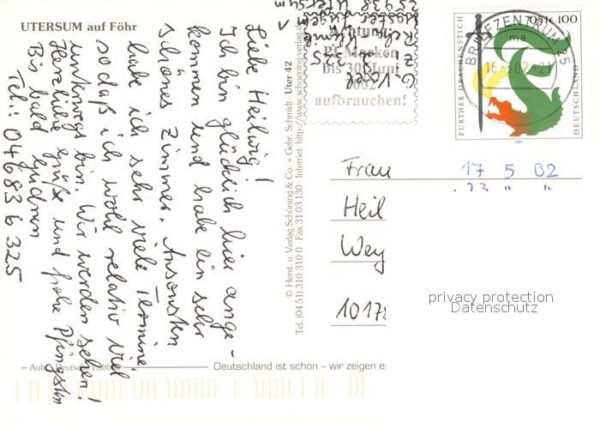 UTERSUM auf Föhr
Liebe Heilwig!
Ich bin glücklich hier ange-
kommen und habe ein sehr
schönes Zimmer. Ansonsten
habe ich sehr viele Termine,
sodaß ich wohl relativ viel
unterwegs bin. Wir werden sehen!
Herzliche Grüße und frohe Pfingsten
Bis bald Gudrun
Tel.: 04683 6 325
© Herst. u. Verlag Schöning & Co. + Gebr. Schmidt · Uter 42
Tel. (04 51) 310 310 0 · Fax 31 03 130 · Internet: http://www.schoening-verlag.de
25938 Utersum
bis 30. Juni
2002
aufbrauchen!
FURTHER DRACHENSTICH
100
DEUTSCHLAND
BRIEFZENTRUM 25
Frau
Heil
Wey
1017
17 5 B2
privacy protection
Datenschutz
Deutschland ist schön – wir zeigen e